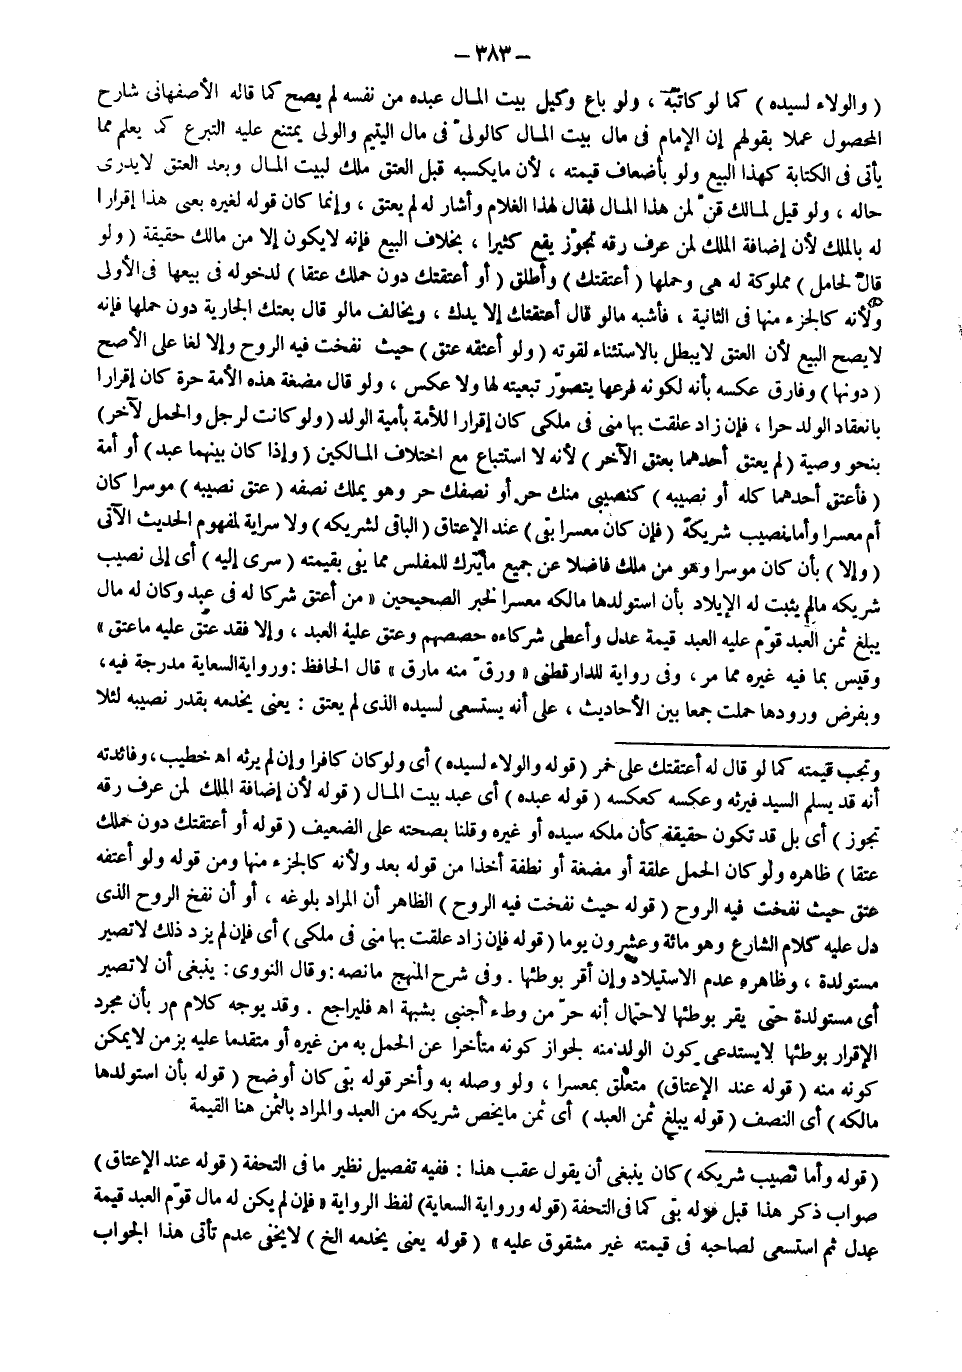 — ٣٨٣ —
( والولاء لسيده ) كما لو كاتبه ، ولو باع وكيل بيت المال عبده من نفسه لم يصح كما قاله الأصفهانى شارح
المحصول عملا بقولهم إن الإمام فى مال بيت المال كالولىّ فى مال اليتيم والولى يمتنع عليه التبرع كما يعلم مما
يأتى فى الكتابة كهذا البيع ولو بأضعاف قيمته ، لأن مايكسبه قبل العتق ملك لبيت المال وبعد العتق لايدرى
حاله ، ولو قيل لمالك قنّ لمن هذا المال فقال لهذا الغلام وأشار له لم يعتق ، وإنما كان قوله لغيره بعنى هذا إقرارا
له بالملك لأن إضافة الملك لمن عرف رقه تجوّز يقع كثيرا ، بخلاف البيع فإنه لايكون إلا من مالك حقيقة ( ولو
قال لحامل ) مملوكة له هى وحملها ( أعتقتك ) وأطلق ( أو أعتقتك دون حملك عتقا ) لدخوله فى بيعها فى الأولى
ولأنه كالجزء منها فى الثانية ، فأشبه مالو قال أعتقتك إلا يدك ، ويخالف مالو قال بعتك الجارية دون حملها فإنه
لايصح البيع لأن العتق لايبطل بالاستثناء لقوته ( ولو أعتقه عتق ) حيث نفخت فيه الروح وإلا لغا على الأصح
( دونها ) وفارق عكسه بأنه لكونه فرعها يتصوّر تبعيته لها ولا عكس ، ولو قال مضغة هذه الأمة حرة كان إقرارا
بانعقاد الولد حرا ، فإن زاد علقت بها منى فى ملكى كان إقرارا للأمة بأمية الولد ( ولو كانت لرجل والحمل لآخر )
بنحو وصية ( لم يعتق أحدهما بعتق الآخر ) لأنه لا استتباع مع اختلاف المالكين ( وإذا كان بينهما عبد ) أو أمة
( فأعتق أحدهما كله أو نصيبه ) كنصيبى منك حر أو نصفك حر وهو يملك نصفه ( عتق نصيبه ) موسرا كان
أم معسرا وأما نصيب شريكه ( فإن كان معسرا بقى ) عند الإعتاق ( الباقى لشريكه ) ولا سراية لمفهوم الحديث الآتى
( وإلا ) بأن كان موسرا وهو من ملك فاضلا عن جميع مايترك للمفلس مما يفى بقيمته ( سرى إليه ) أى إلى نصيب
شريكه مالم يثبت له الإيلاد بأن استولدها مالكه معسرا لخبر الصحيحين « من أعتق شركا له فى عبد وكان له مال
يبلغ ثمن العبد قوّم عليه العبد قيمة عدل وأعطى شركاءه حصصهم وعتق عليه العبد ، وإلا فقد عتق عليه ماعتق »
وقيس بما فيه غيره مما مر ، وفى رواية للدارقطنى « ورقّ منه مارق » قال الحافظ : ورواية السعاية مدرجة فيه ،
وبفرض ورودها حملت جمعا بين الأحاديث ، على أنه يستسعى لسيده الذى لم يعتق : يعنى يخدمه بقدر نصيبه لئلا
وتجب قيمته كما لو قال له أعتقتك على خمر ( قوله والولاء لسيده ) أى ولو كان كافرا وإن لم يرثه اه خطيب ، وفائدته
أنه قد يسلم السيد فيرثه وعكسه كعكسه ( قوله عبده ) أى عبد بيت المال ( قوله لأن إضافة الملك لمن عرف رقه
تجوز ) أى بل قد تكون حقيقة كأن ملكه سيده أو غيره وقلنا بصحته على الضعيف ( قوله أو أعتقتك دون حملك
عتقا ) ظاهره ولو كان الحمل علقة أو مضغة أو نطفة أخذا من قوله بعد ولأنه كالجزء منها ومن قوله ولو أعتقه
عتق حيث نفخت فيه الروح ( قوله حيث نفخت فيه الروح ) الظاهر أن المراد بلوغه ، أو أن نفخ الروح الذى
دل عليه كلام الشارع وهو مائة وعشرون يوما ( قوله فإن زاد علقت بها منى فى ملكى ) أى فإن لم يزد ذلك لاتصير
مستولدة ، وظاهره عدم الاستيلاد وإن أقر بوطئها . وفى شرح المنهج مانصه : وقال النووى : ينبغى أن لاتصير
أى مستولدة حتى يقر بوطئها لاحتمال أنه حرّ من وطء أجنبى بشبهة اه فليراجع . وقد يوجه كلام مر بأن مجرد
الإقرار بوطئها لايستدعى كون الولد منه لجواز كونه متأخرا عن الحمل به من غيره أو متقدما عليه بزمن لايمكن
كونه منه ( قوله عند الإعتاق) متعلق بمعسرا ، ولو وصله به وأخر قوله بقى كان أوضح ( قوله بأن استولدها
مالكه ) أى النصف ( قوله يبلغ ثمن العبد ) أى ثمن مايخص شريكه من العبد والمراد بالثمن هنا القيمة
( قوله وأما نصيب شريكه ) كان ينبغى أن يقول عقب هذا : ففيه تفصيل نظير ما فى التحفة ( قوله عند الإعتاق )
صواب ذكر هذا قبل قوله بقى كما فى التحفة (قوله ورواية السعاية) لفظ الرواية « فإن لم يكن له مال قوّم العبد قيمة
عدل ثم استسعى لصاحبه فى قيمته غير مشقوق عليه » ( قوله يعنى يخدمه الخ ) لايخفى عدم تأتى هذا الجواب